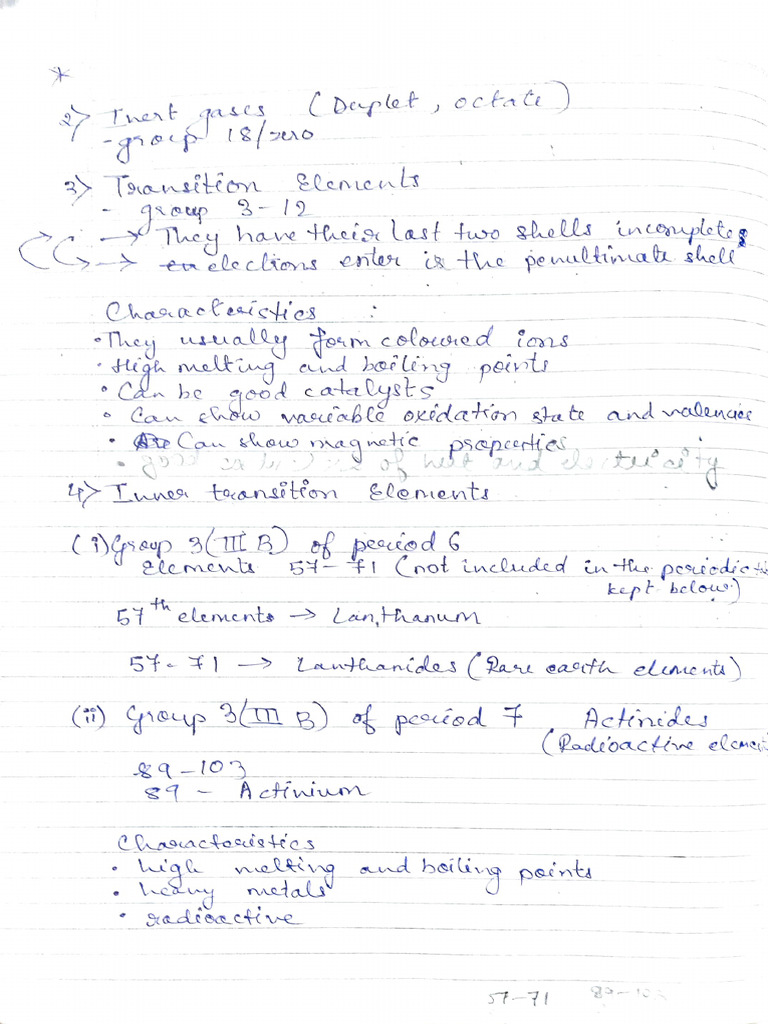 *
2) Inert gases (Duplet, octate)
- group 18/zero
3) Transition Elements
- group 3-12
→ They have their last two shells incomplete
→ elections enter is the penultimate shell
Characteristics :
• They usually form coloured ions
• High melting and boiling points
• Can be good catalysts
• Can show variable oxidation state and valencies
• Can show magnetic properties
• good of heat and electricity
4) Inner transition Elements
(i) Group 3(III B) of period 6
Elements 57-71 (not included in the periodic
kept below)
57th elements → Lanthanum
57-71 → Lanthanides (Rare earth elements)
(ii) Group 3(III B) of period 7 Actinides
(Radioactive elemen
89-103
89 - Actinium
Characteristics
• high melting and boiling points
• heavy metals
• radioactive
57-71 89-103